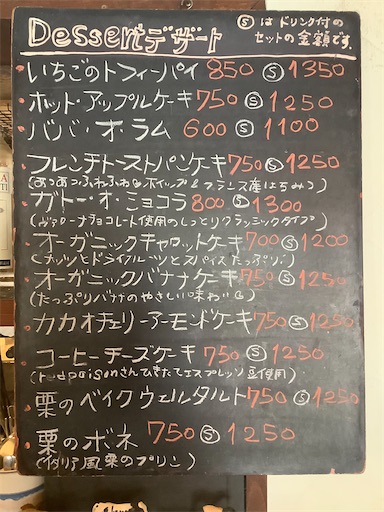 Dessertデザート
Ⓢ は ドリンク付の
セットの金額です。
いちごのトフィーパイ 850 Ⓢ 1350
ホット・アップルケーキ 750 Ⓢ 1250
ババ・オ・ラム 600 Ⓢ 1100
フレンチトーストパンケーキ 750 Ⓢ 1250
(あつあつふわふわ ホイップ & フランス産はちみつ)
ガトー・オ・ショコラ 800 Ⓢ 1300
(ヴァローナチョコレート使用のしっとりクラシックタイプ)
オーガニックキャロットケーキ 700 Ⓢ 1200
(ナッツとドライフルーツとスパイスたっぷり!)
オーガニックバナナケーキ 750 Ⓢ 1250
(たっぷりバナナのやさしい味わい)
カカオチェリーアーモンドケーキ 750 Ⓢ 1250
コーヒーチーズケーキ 750 Ⓢ 1250
(redpoisonさんひきたてエスプレッソ豆使用)
栗のベイクウェルタルト 750 Ⓢ 1250
栗のボネ 750 Ⓢ 1250
(イタリア風栗のプリン)